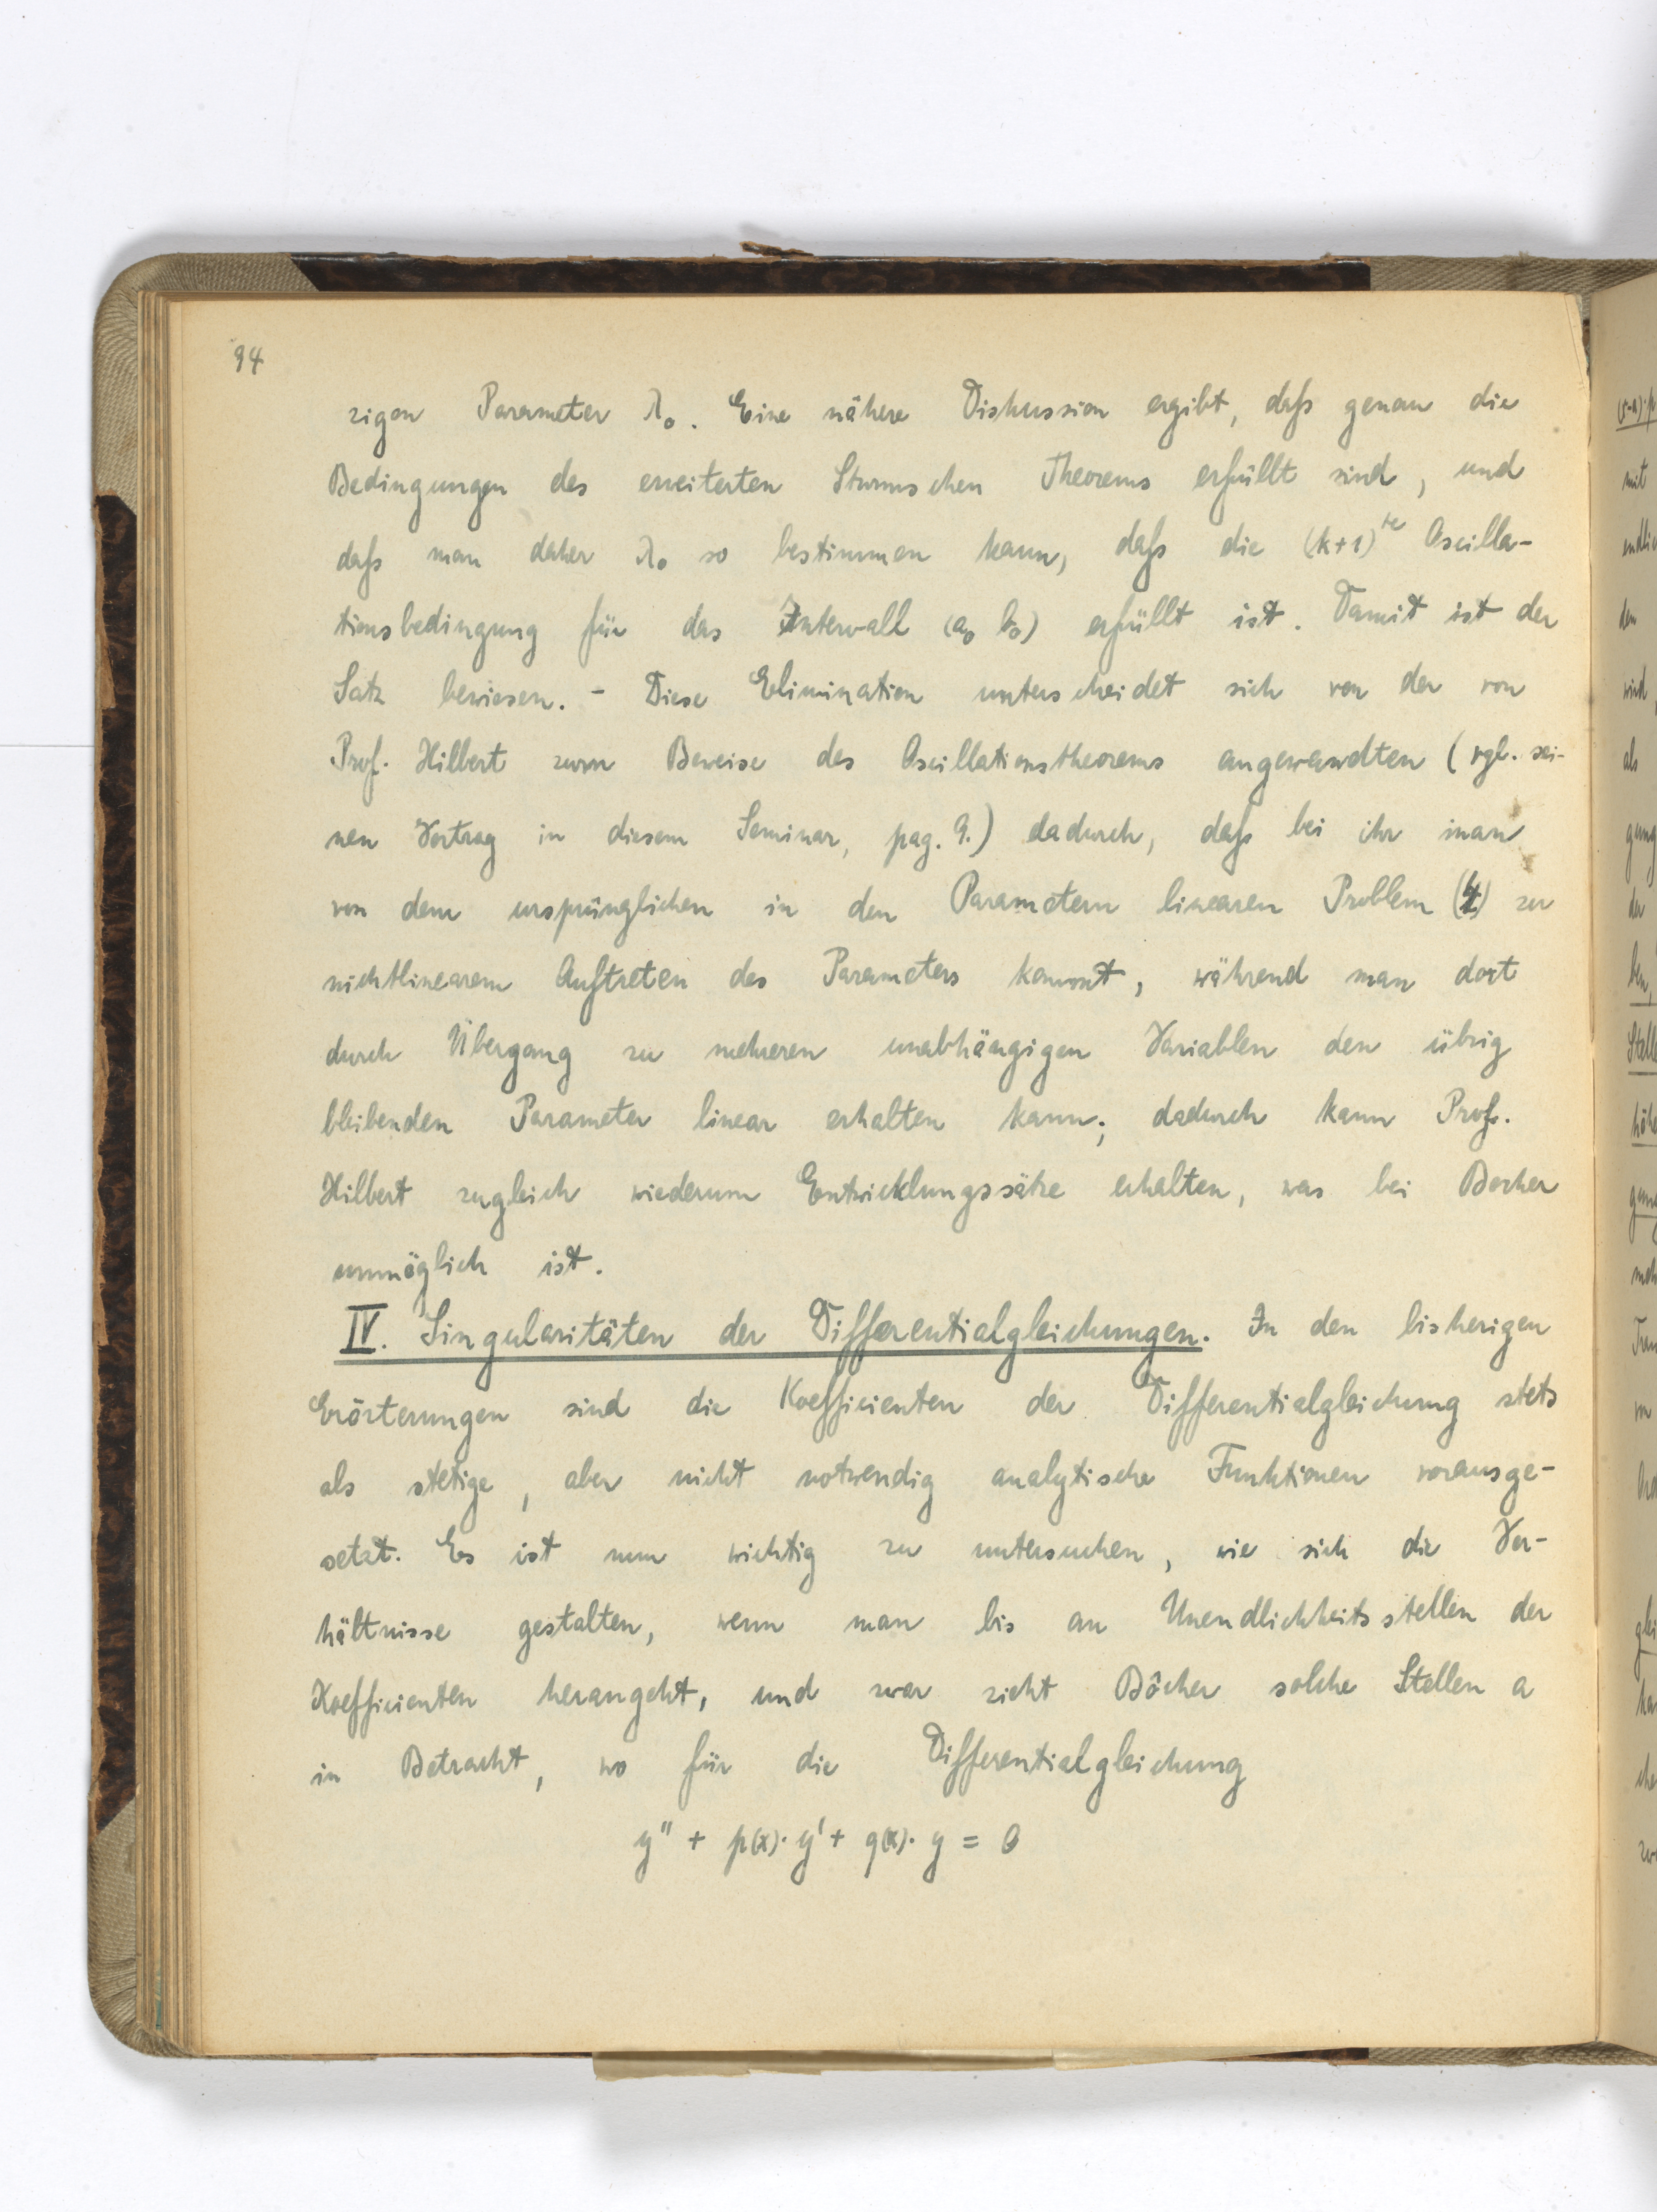 94
zigen Parameter λ₀. Eine nähere Diskussion ergibt, daß genau die
Bedingungen des erweiterten Sturmschen Theorems erfüllt sind, und
daß man daher λ₀ so bestimmen kann, daß die (k+1)te Oscilla-
tionsbedingung für das Intervall (a₀ b₀) erfüllt ist. Damit ist der
Satz bewiesen. - Diese Elimination unterscheidet sich von der von
Prof. Hilbert zum Beweise des Oscillationstheorems angewandten (vgl. sei-
nen Vortrag in diesem Seminar, pag. 9.) dadurch, daß bei ihr man
von dem ursprünglichen in den Parametern linearen Problem (4) zu
nichtlinearem Auftreten des Parameters kommt, während man dort
durch Übergang zu mehreren unabhängigen Variablen den übrig
bleibenden Parameter linear erhalten kann; dadurch kann Prof.
Hilbert zugleich wiederum Entwicklungssätze erhalten, was bei Bocher
unmöglich ist.
IV. Singularitäten der Differentialgleichungen. In den bisherigen
Erörterungen sind die Koefficienten der Differentialgleichung stets
als stetige, aber nicht notwendig analytische Funktionen vorausge-
setzt. Es ist nun wichtig zu untersuchen, wie sich die Ver-
hältnisse gestalten, wenn man bis an Unendlichkeitsstellen der
Koefficienten herangeht, und zwar zieht Bôcher solche Stellen a
in Betracht, wo für die Differentialgleichung
y'' + p(x)· y' + q(x)· y = 0